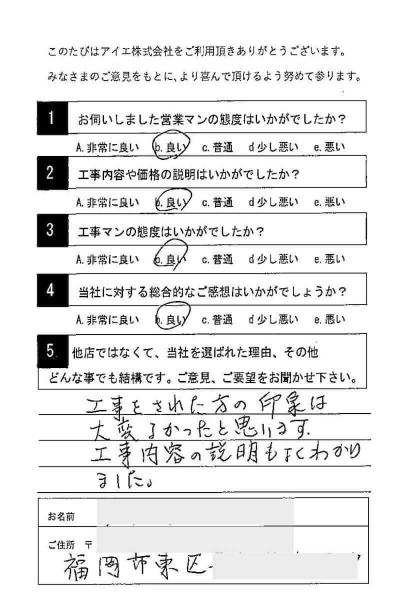 このたびはアイエ株式会社をご利用頂きありがとうございます。
みなさまのご意見をもとに、より喜んで頂けるよう努めて参ります。
1 お伺いしました営業マンの態度はいかがでしたか？
A.非常に良い b.良い c.普通 d少し悪い e.悪い
2 工事内容や価格の説明はいかがでしたか？
A.非常に良い b.良い c.普通 d少し悪い e.悪い
3 工事マンの態度はいかがでしたか？
A.非常に良い b.良い c.普通 d少し悪い e.悪い
4 当社に対する総合的なご感想はいかがでしょうか？
A.非常に良い b.良い c.普通 d少し悪い e.悪い
5. 他店ではなくて、当社を選ばれた理由、その他
どんな事でも結構です。ご意見、ご要望をお聞かせ下さい。
工事をされた方の印象は
大変よかったと思います。
工事内容の説明もよくわかり
ました。
お名前
ご住所 〒
福岡市東区